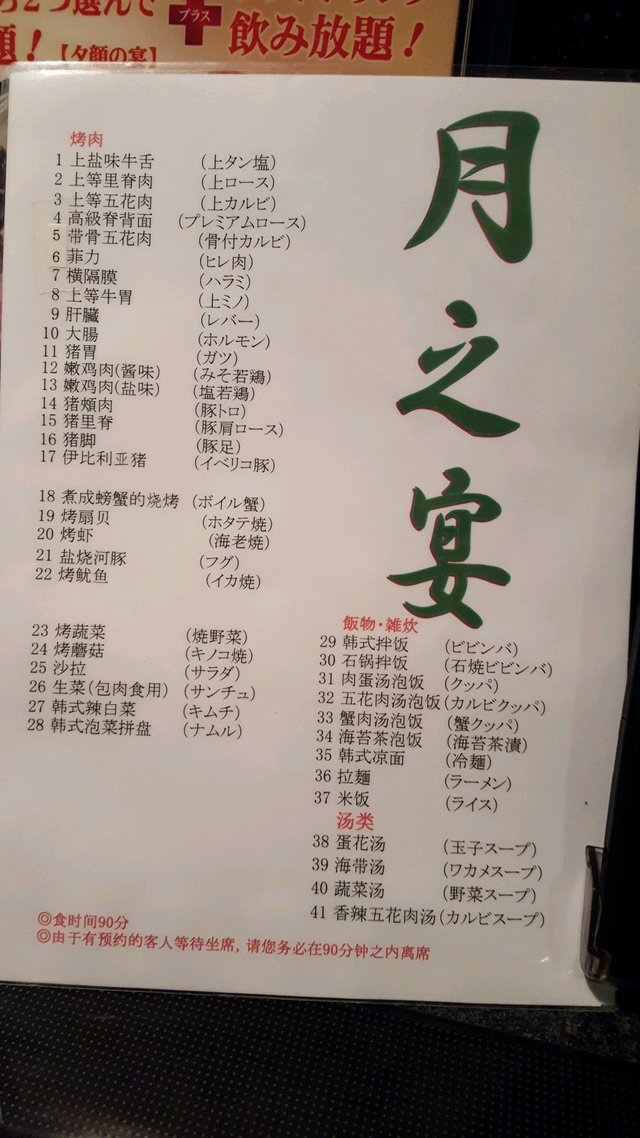 2つ選んで
プラス
飲み放題！
題！【夕顔の宴】
月之宴
烤肉
1 上盐味牛舌 (上タン塩)
2 上等里脊肉 (上ロース)
3 上等五花肉 (上カルビ)
4 高級脊背面 (プレミアムロース)
5 带骨五花肉 (骨付カルビ)
6 菲力 (ヒレ肉)
7 横隔膜 (ハラミ)
8 上等牛胃 (上ミノ)
9 肝臓 (レバー)
10 大腸 (ホルモン)
11 猪胃 (ガツ)
12 嫩鸡肉(酱味) (みそ若鶏)
13 嫩鸡肉(盐味) (塩若鶏)
14 猪頬肉 (豚トロ)
15 猪里脊 (豚肩ロース)
16 猪脚 (豚足)
17 伊比利亚猪 (イベリコ豚)
18 煮成螃蟹的烧烤 (ボイル蟹)
19 烤扇贝 (ホタテ焼)
20 烤虾 (海老焼)
21 盐烧河豚 (フグ)
22 烤鱿鱼 (イカ焼)
23 烤蔬菜 (焼野菜)
24 烤蘑菇 (キノコ焼)
25 沙拉 (サラダ)
26 生菜(包肉食用) (サンチュ)
27 韩式辣白菜 (キムチ)
28 韩式泡菜拼盘 (ナムル)
飯物・雑炊
29 韩式拌饭 (ビビンバ)
30 石锅拌饭 (石焼ビビンバ)
31 肉蛋汤泡饭 (クッパ)
32 五花肉汤泡饭 (カルビクッパ)
33 蟹肉汤泡饭 (蟹クッパ)
34 海苔茶泡饭 (海苔茶漬)
35 韩式凉面 (冷麺)
36 拉麺 (ラーメン)
37 米饭 (ライス)
汤类
38 蛋花汤 (玉子スープ)
39 海带汤 (ワカメスープ)
40 蔬菜汤 (野菜スープ)
41 香辣五花肉汤 (カルビスープ)
◎食时间90分
◎由于有预约的客人等待坐席, 请您务必在90分钟之内离席